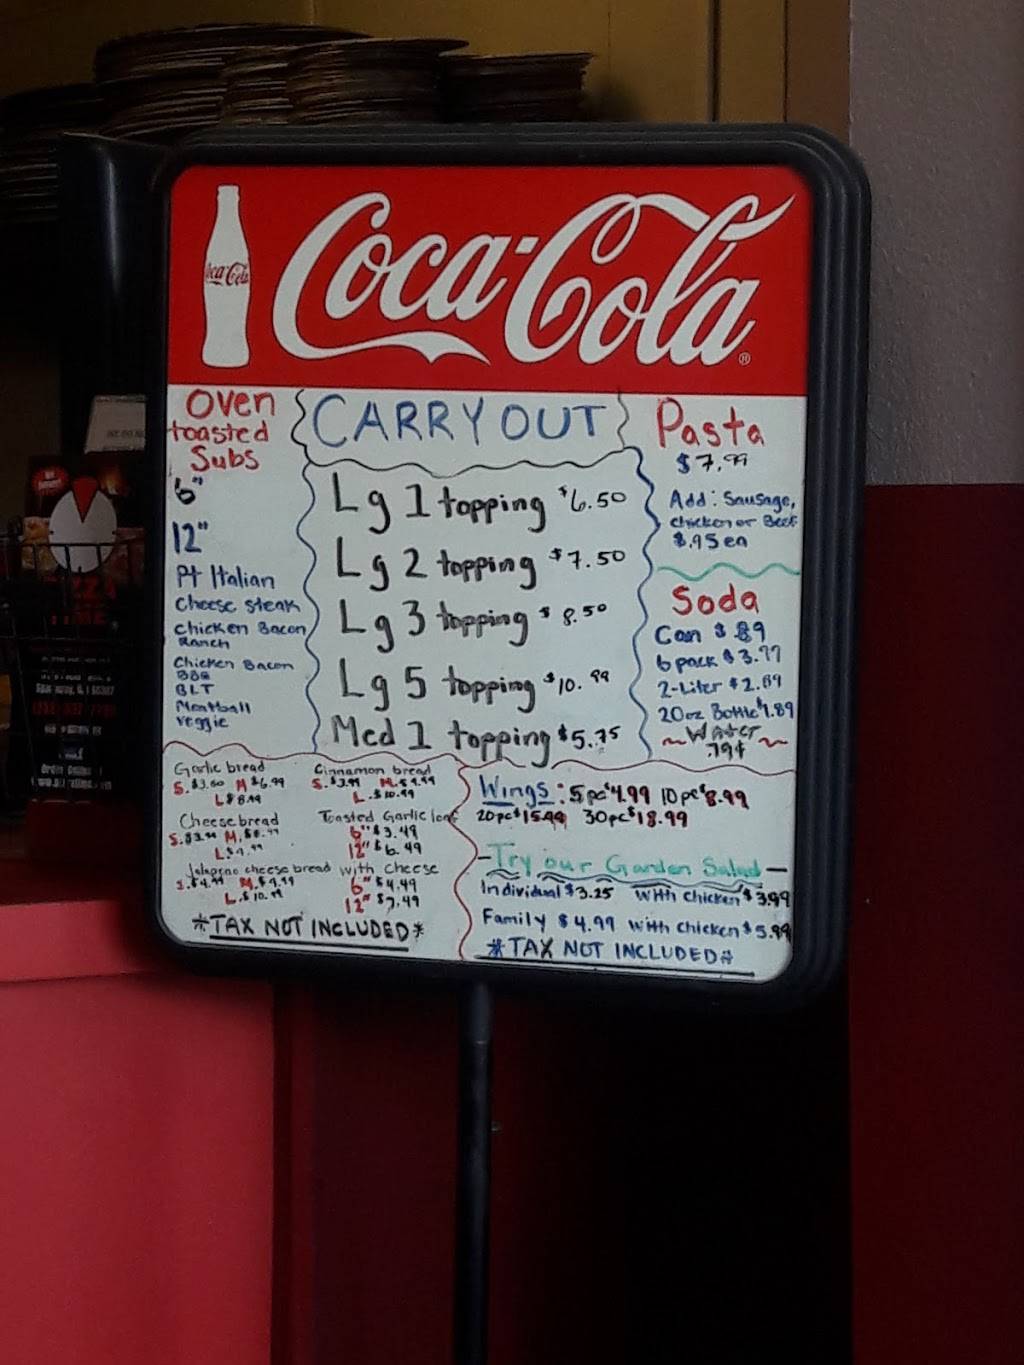 Coca-Cola
Coca-Cola
Oven
toasted
Subs
6"
12"
Pt Italian
Cheese steak
Chicken Bacon
Ranch
Chicken Bacon
BBQ
BLT
Meatball
Veggie
CARRYOUT
Lg 1 topping $6.50
Lg 2 topping $7.50
Lg 3 topping $8.50
Lg 5 topping $10.99
Med 1 topping $5.75
Pasta
$7.99
Add: Sausage,
chicken or Beef
$.95 ea
Soda
Can $.89
6 pack $3.77
2-Liter $2.89
20oz Bottle $1.89
~Water~
.79¢
Garlic bread
S. $3.60 M $6.99
L $8.99
Cheese bread
S. M.
L.
Jalapeno cheese bread
S. $4.99 M. $9.99
L. $10.99
Cinnamon bread
S. $3.99 M.
L. $10.99
Toasted Garlic loaf
6" $3.49
12" $6.49
with cheese
6" $4.49
12" $7.49
*TAX NOT INCLUDED*
Wings: 5pc $4.99 10pc $8.99
20pc $15.99 30pc $18.99
-Try our Garden Salad-
Individual $3.25 With Chicken $3.99
Family $4.99 with chicken $5.99
*TAX NOT INCLUDED*